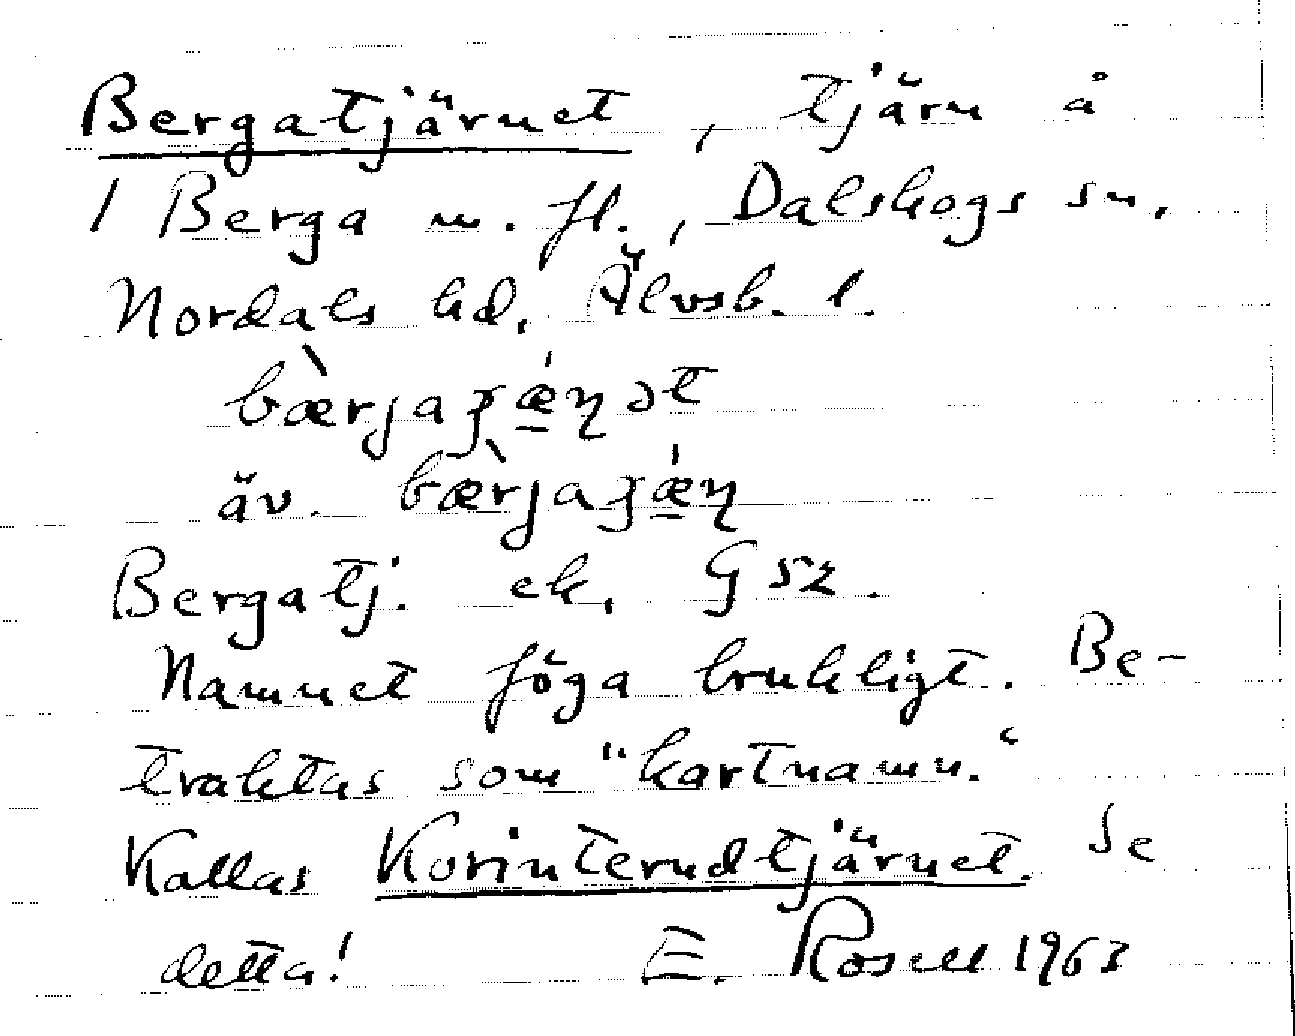 Bergatjärnet, tjärn å
1 Berga m. fl., Dalskogs sn,
Nordals hd, Älvsb. l.
bæ̀rjaʒǽŋət
äv. bæ̀rjaʒǽŋ
Bergatj. ek. G 52.
Namnet föga brukligt. Be-
traktas som "kartnamn."
Kallas Korinterudtjärnet. Se
detta! E. Rosell 1963